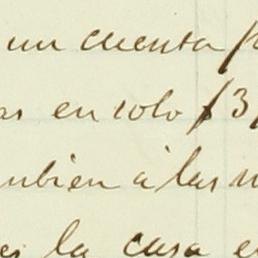 un cuenta
en solo $3
mbien á las
la casa